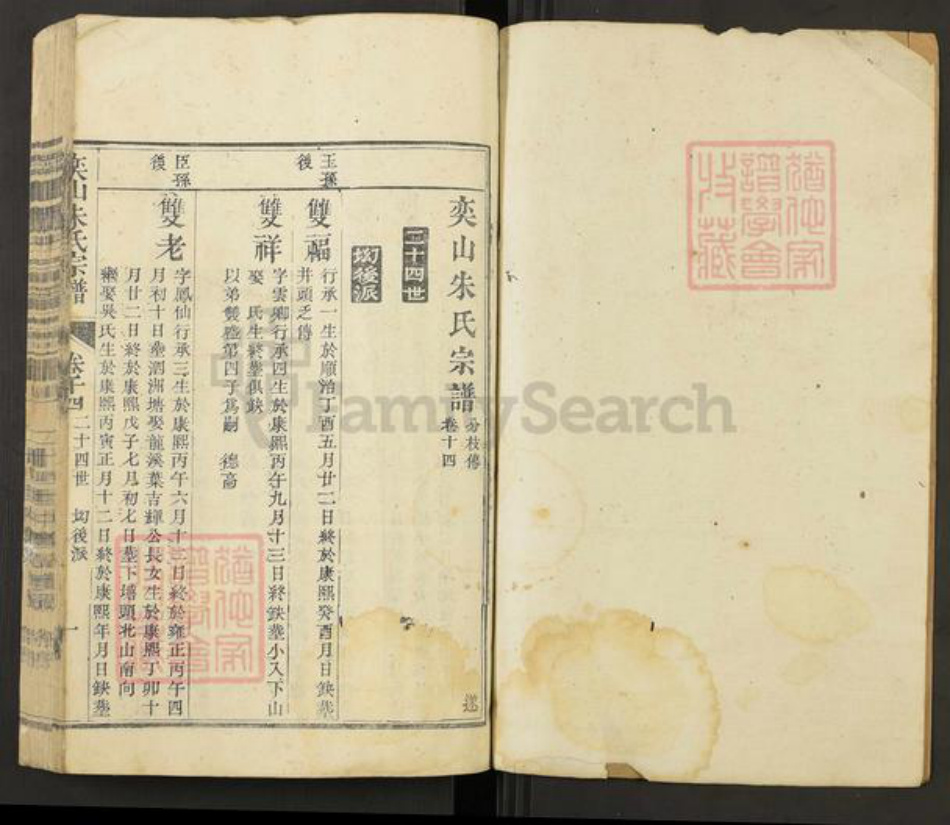 奕山朱氏宗譜 分枝傳
卷十四
遂
二十四世
坳後派
玉孫
後
雙福
行承一生於順治丁酉五月廿二日終於康熙癸酉月日缺塟
井頭之傳
雙祥
字雲卿行承四生於康熙丙午九月十三日終缺塟小入下山
娶 氏生終塟俱缺
以弟雙 第四子爲嗣 德高
臣孫
後
雙老
字鳳仙行承三生於康熙丙午六月十二日終於雍正丙午四
月初十日塟泗洲塘娶龍溪葉吉輝公長女生於康熙丁卯十
月廿二日終於康熙戊子七月初七日塟下 頭北山南向
繼娶吳氏生於康熙丙寅正月十二日終於康熙年月日缺塟
奕山朱氏宗譜 卷十四 二十四世 坳後派 一
譜學會
收藏
FamilySearch